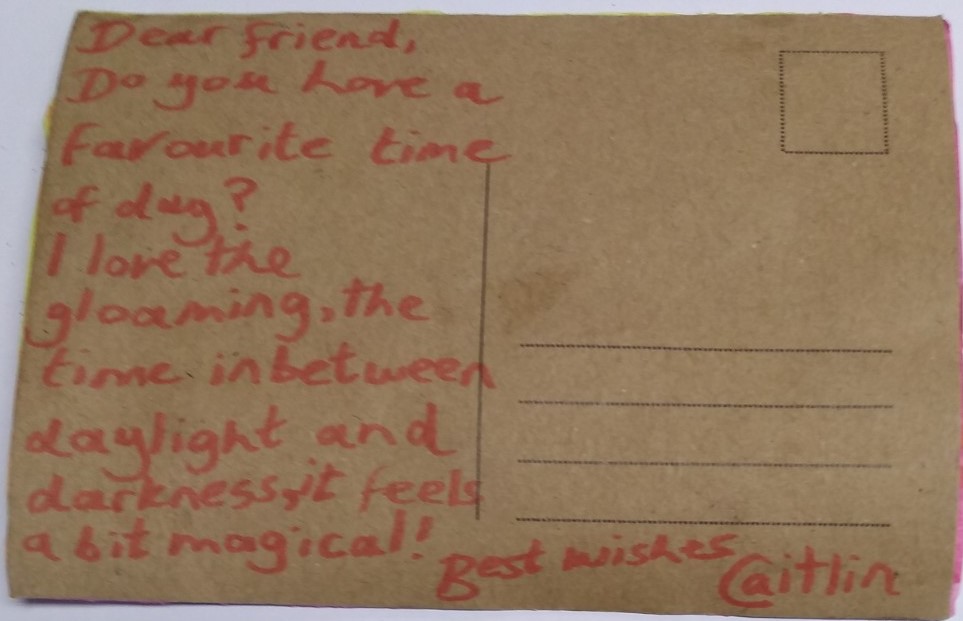 Dear friend,
Do you have a
favourite time
of day?
I love the
gloaming, the
time inbetween
daylight and
darkness, it feels
a bit magical!
Best wishes
Caitlin